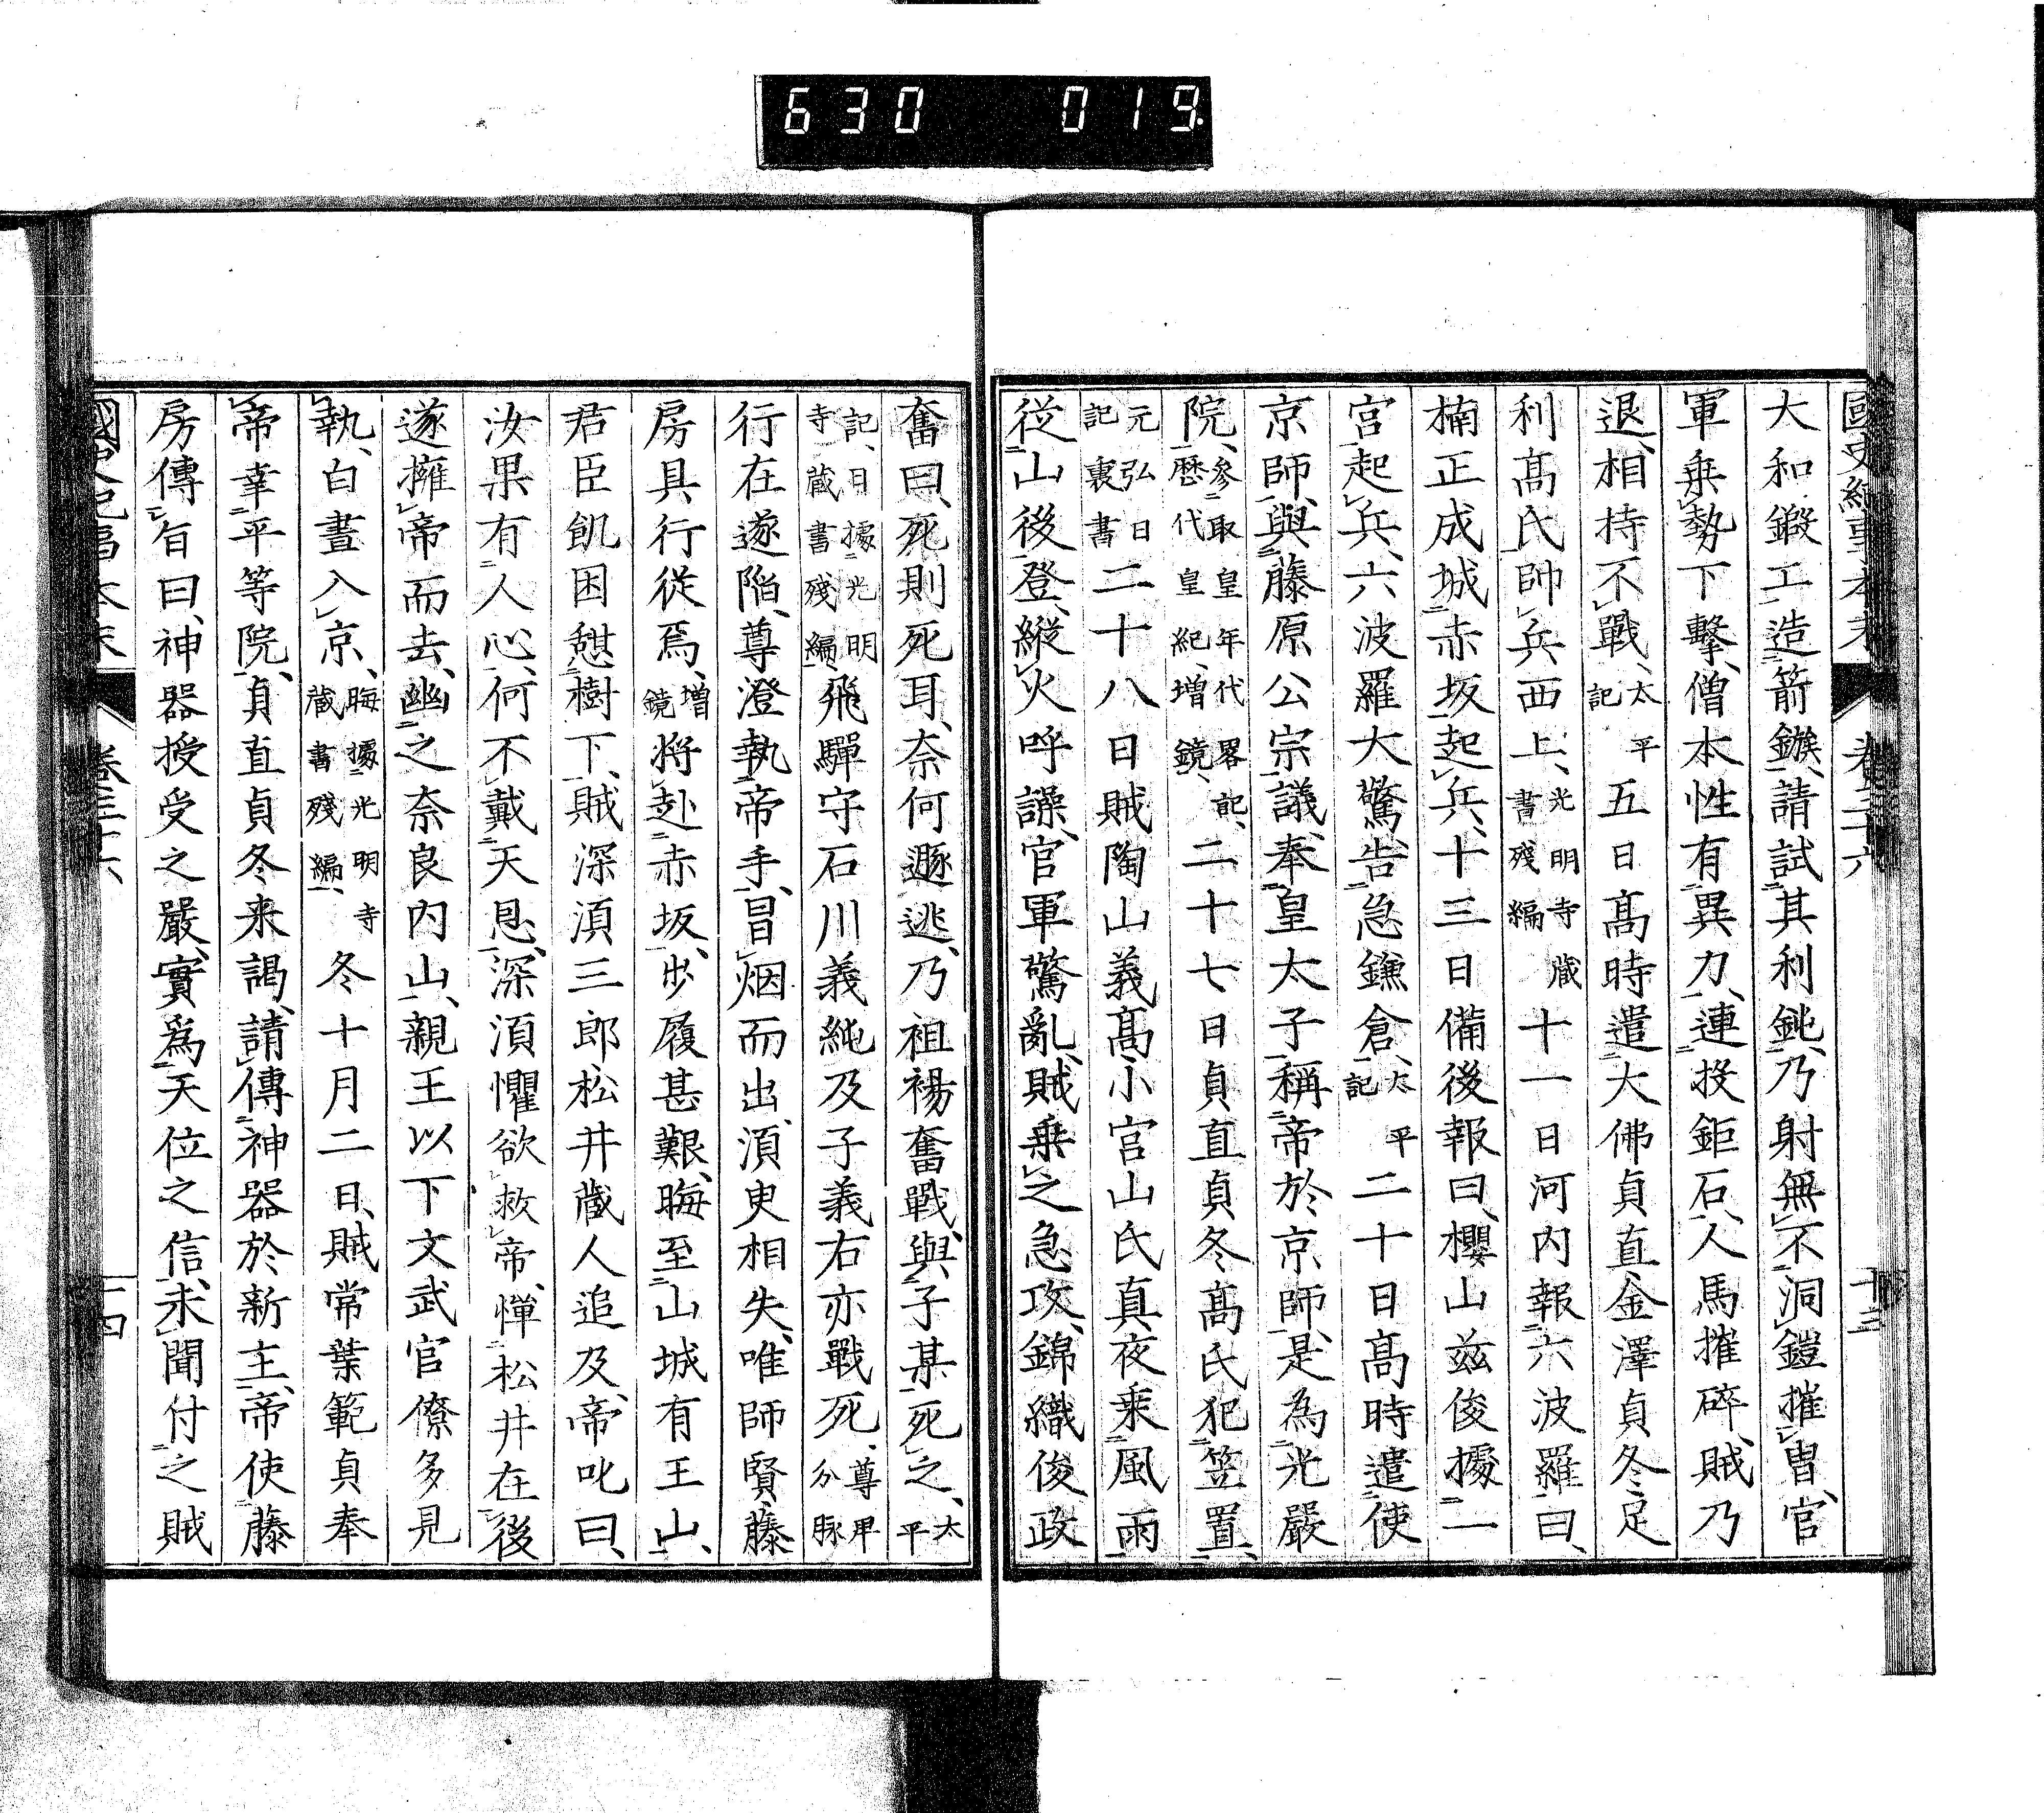 630 019.
國史紀事本末 卷二十六 十三
大和鍛工造箭鏃、請試其利鈍、乃射無不洞鎧摧冑、官
軍乘勢下擊、僧本性有異力、連投鉅石、人馬摧碎、賊乃
退、相持不戰、太平記五日高時遣大佛貞直金澤貞冬足
利高氏帥兵西上、光明寺藏書殘編十一日河内報六波羅曰、
楠正成城赤坂起兵、十三日備後報曰、櫻山茲俊據一
宮起兵、六波羅大驚、告急鎌倉、太平記二十日高時遣使
京師、與藤原公宗議、奉皇太子稱帝於京師、是為光嚴
院、參取皇年代畧記、歷代皇紀、増鏡、二十七日貞直貞冬高氏犯笠置、
元弘日記裏書二十八日賊陶山義高小宮山氏真夜乘風雨
從山後登、縱火呼譟、官軍驚亂、賊乘之急攻、錦織俊政
奮曰、死則死耳、奈何遯逃、乃袒裼奮戰、與子某死之、太平
記、日據光明寺藏書殘編、飛驒守石川義純及子義右亦戰死、尊卑分脉
行在遂陥、尊澄執帝手、冒烟而出、須臾相失、唯師賢藤
房具行從焉、增鏡將赴赤坂、步履甚艱、晦至山城有王山、
君臣飢困憩樹下、賊深須三郎松井藏人追及、帝叱曰、
汝果有人心、何不戴天恩、深須懼欲救帝、憚松井在後
遂擁帝而去、幽之奈良内山、親王以下文武官僚多見
執、白晝入京、晦據光明寺藏書殘編、冬十月二日、賊常葉範貞奉
帝幸平等院、貞直貞冬来謁、請傳神器於新主、帝使藤
房傳旨曰、神器授受之嚴、實為天位之信、未聞付之賊
國史紀事本末 卷二十六 十四